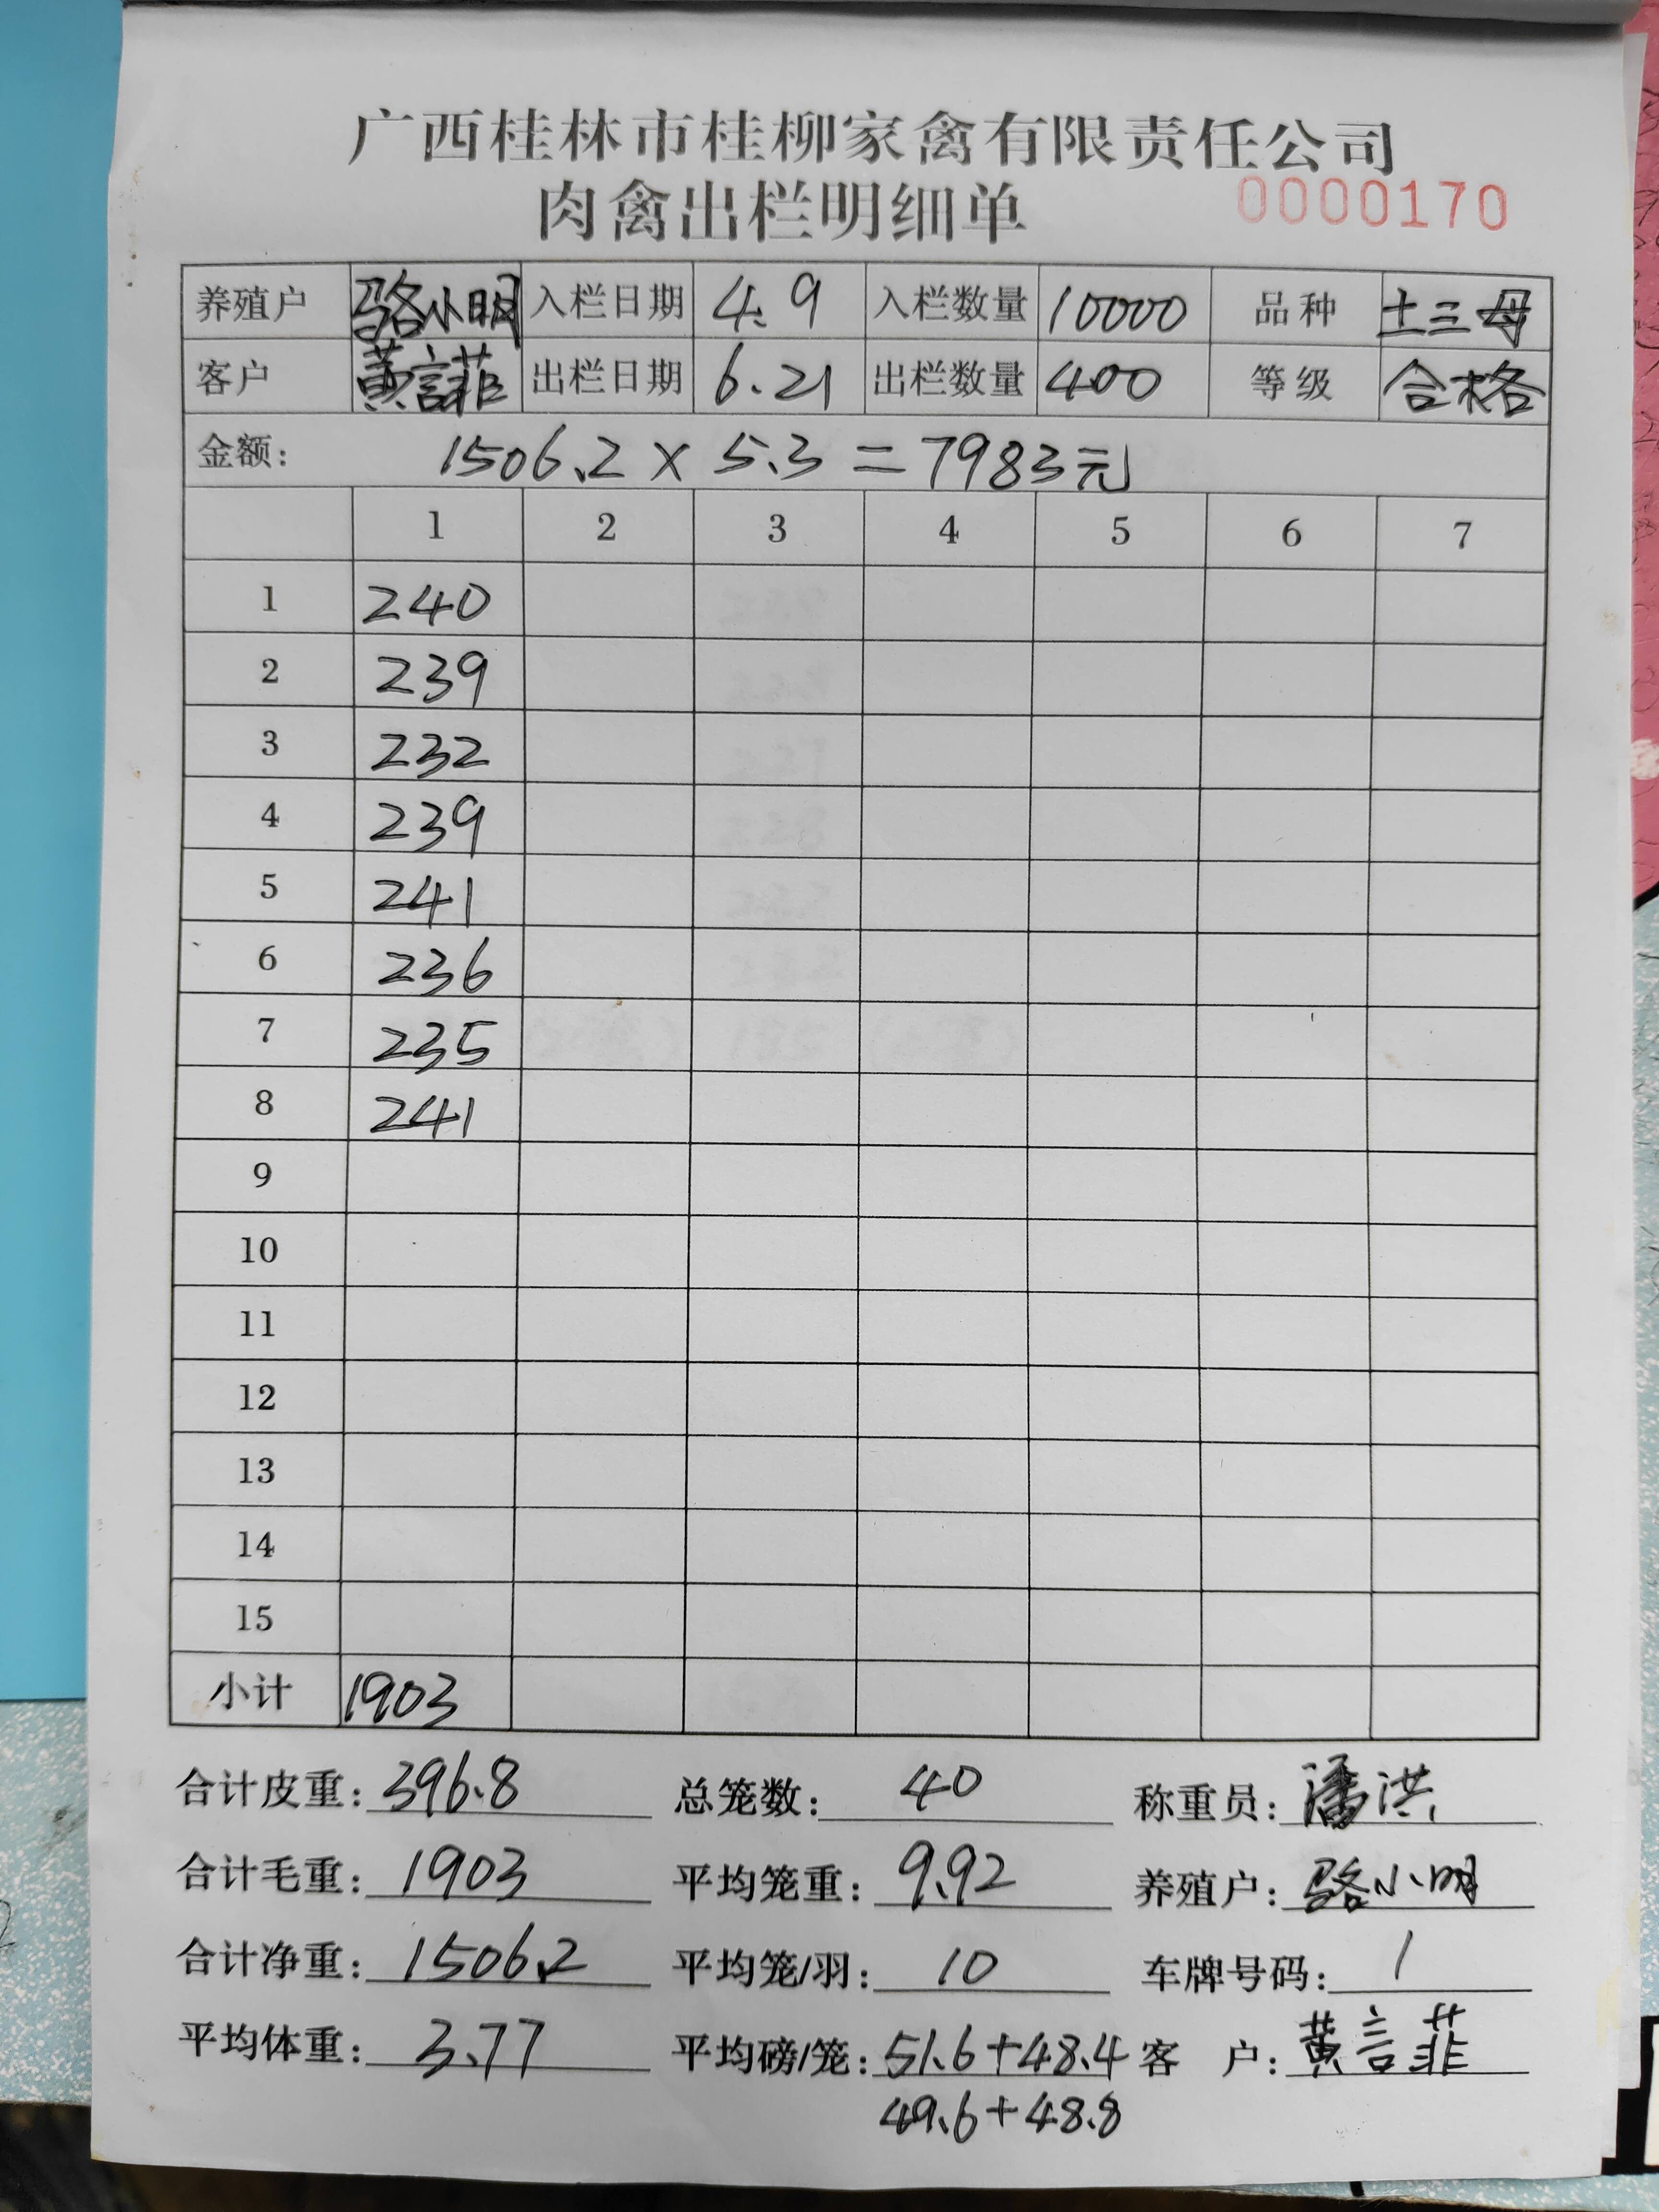 广西桂林市桂柳家禽有限责任公司
肉禽出栏明细单 0000170
养殖户 骆小明 入栏日期 4.9 入栏数量 10000 品种 土三母
客户 黄言菲 出栏日期 6.21 出栏数量 400 等级 合格
金额: 1506.2 × 5.3 = 7983元
1 2 3 4 5 6 7
1 240
2 239
3 232
4 239
5 241
6 236
7 235
8 241
9
10
11
12
13
14
15
小计 1903
合计皮重: 396.8 总笼数: 40 称重员: 潘洪
合计毛重: 1903 平均笼重: 9.92 养殖户: 骆小明
合计净重: 1506.2 平均笼/羽: 10 车牌号码: 1
平均体重: 3.77 平均磅/笼: 51.6+48.4 客 户: 黄言菲
49.6+48.8